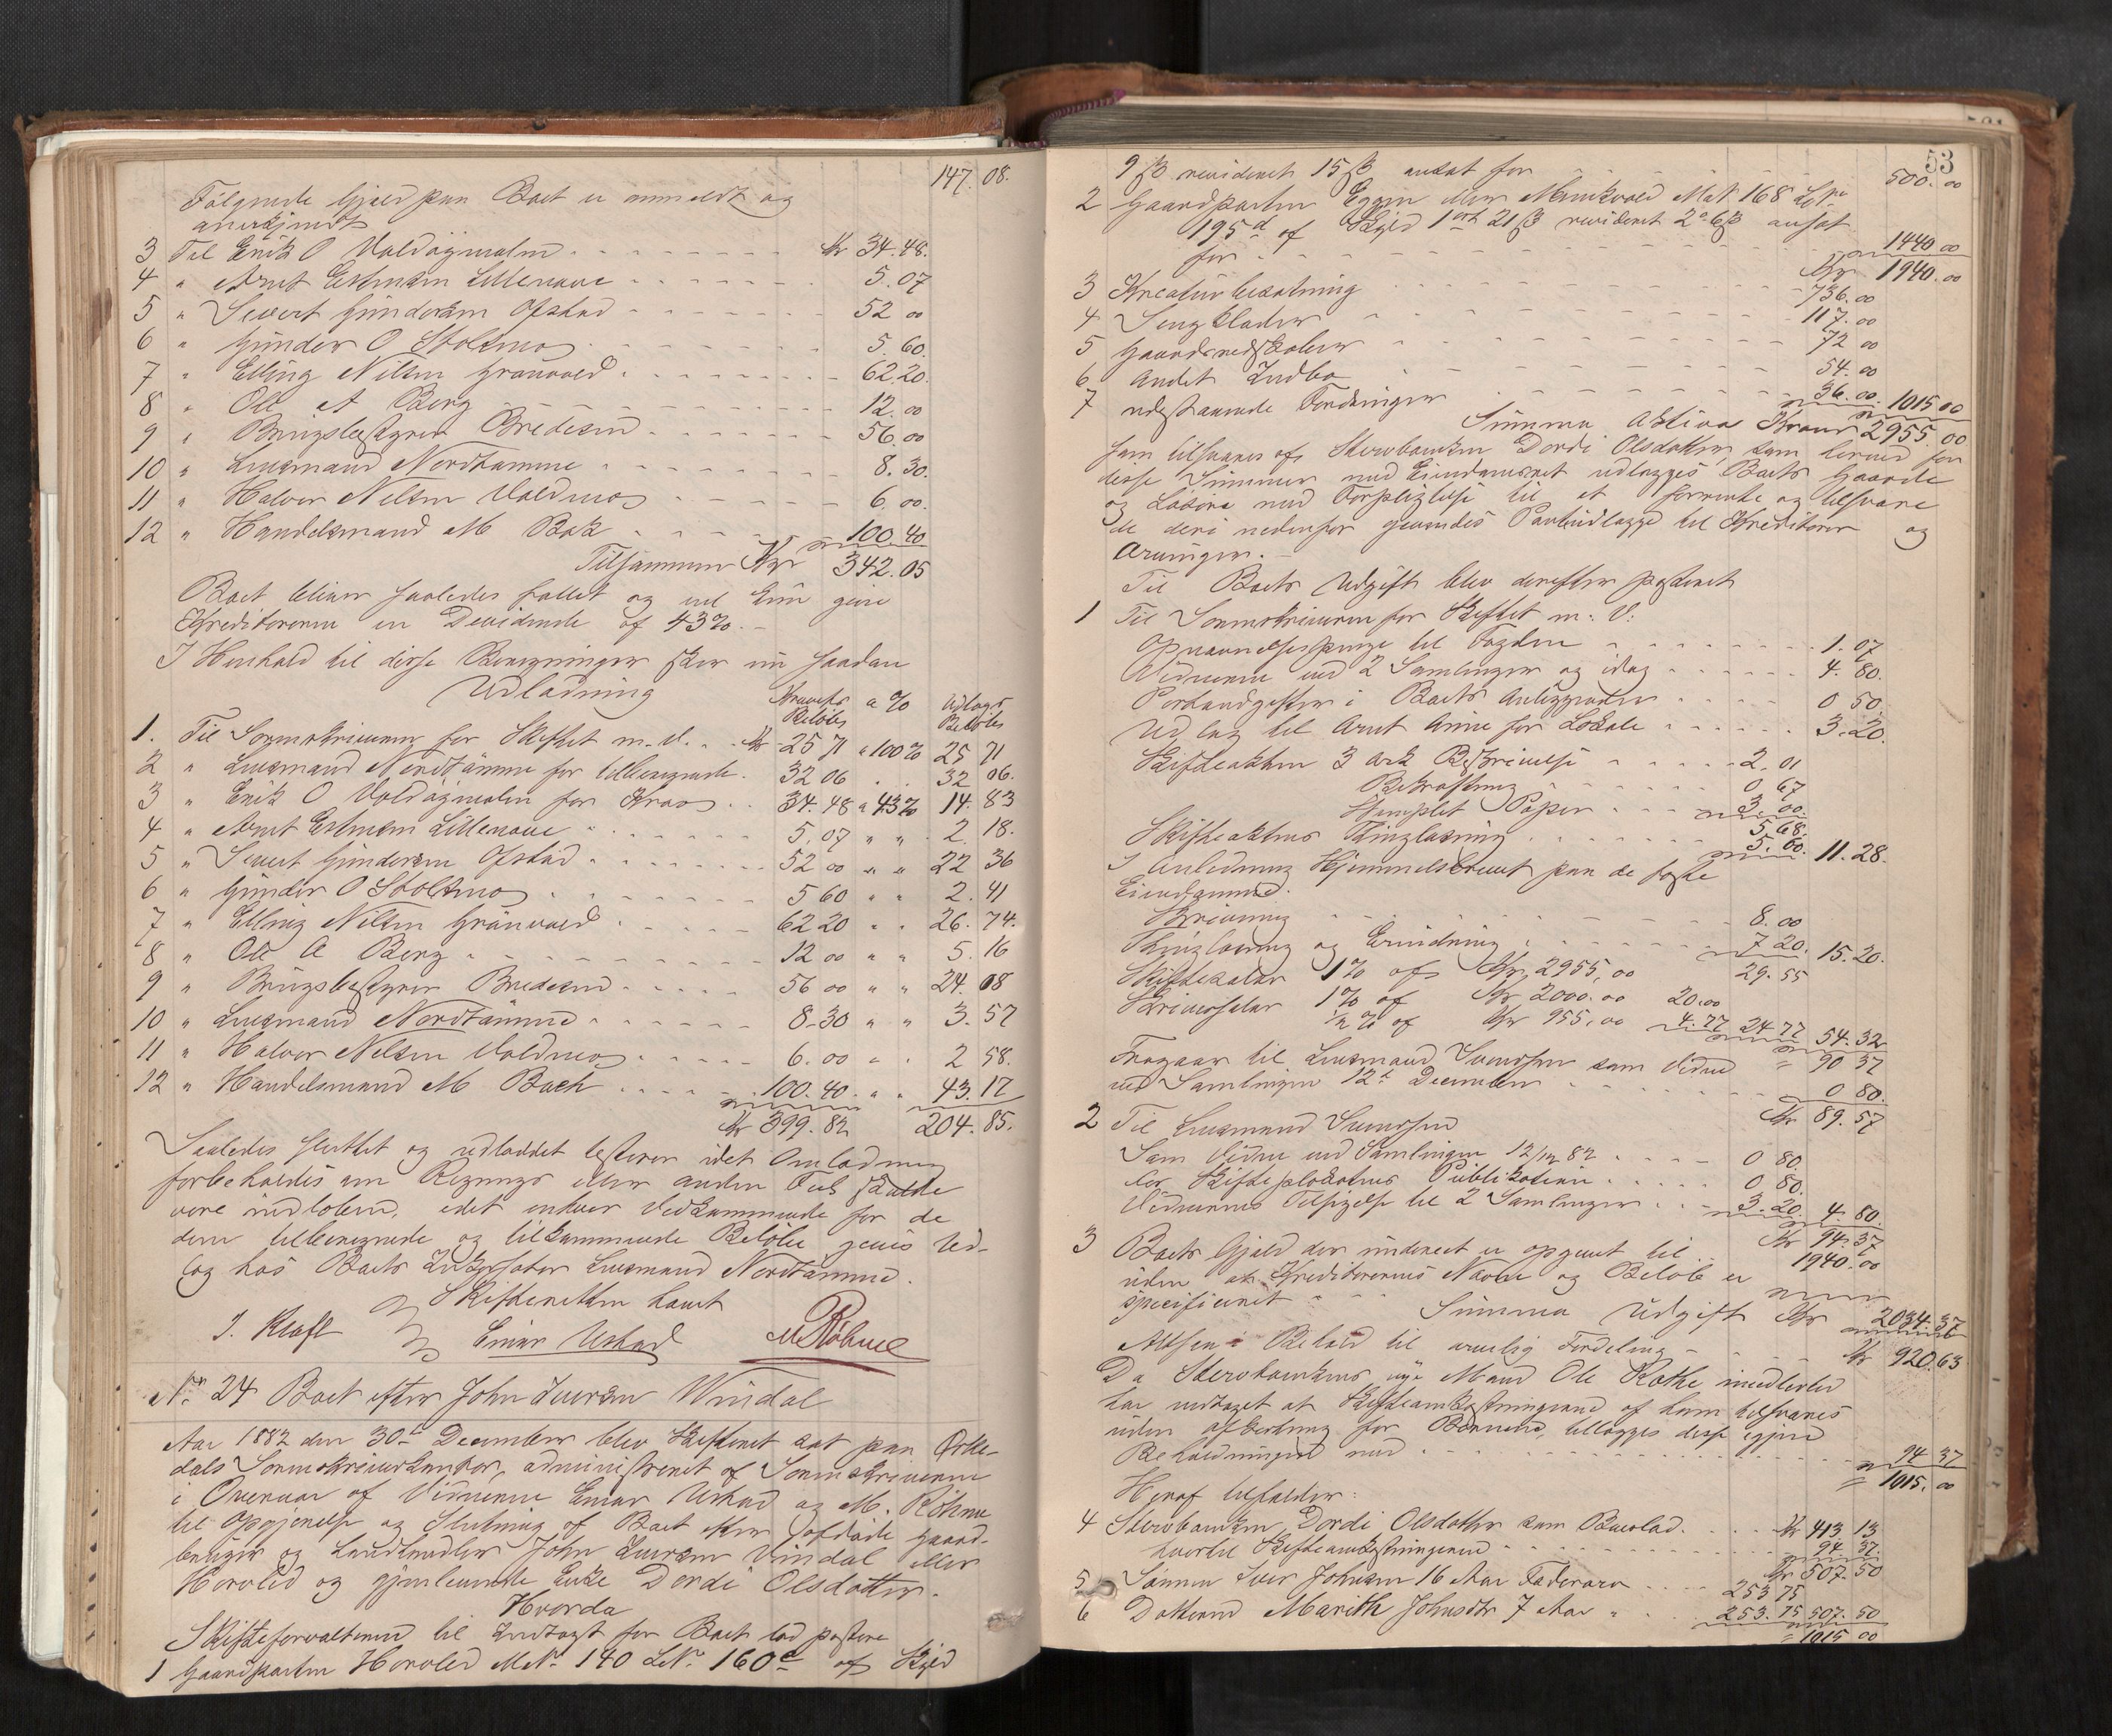 147. 08.
Følgende Gjæld paa Boet er anmeldt og
anerkjendt
3 Til Erik O Voldøgmalm Kr 34.48.
4 " Arnt Estensen Lillemoe 5.07
5 " Sivert Gundersen Ofstad 52 00
6 " Gunder O Stoltmo 5.60.
7 " Elling Nilsen Grønvold 62.20.
8 " Ole A Berg 12.00
9 " Brugsbestyrer Bredesen 56.00
10 " Lensmand Nordtømme 8.30.
11 " Halvor Nilsen Voldmo 6.00.
12 " Handelsmand M Bak 100.40
Tilsammen Kr 342.05
Boet bliver saaledes fallit og vil kun give
Kreditorerne en Dividende af 43%.
I Henhold til disse Beregninger sker nu saadan
Udlodning
Kravets Beløb a % Udlagt Beløb
1. Til Sorenskriveren for Skiftet m. v. Kr 25 71 a 100% 25 71
2 " Lensmand Nordtømme for tilberegnede 32 06 32 06.
3 " Erik O Voldøgmalm for Krav 34.48 a 43% 14.83
4 " Arnt Estensen Lillemoe 5.07 " " 2.18.
5 " Sivert Gundersen Ofstad 52 00 " " 22 36
6 " Gunder O Stoltmo 5 60 " " 2.41
7 " Elling Nilsen Grønvold 62 20 " " 26.74.
8 " Ole A Berg 12 00 " " 5.16
9 " Brugsbestyrer Bredesen 56 00 " " 24.08
10 " Lensmand Nordtømme 8-30 " " 3.57
11 " Halvor Nilsen Voldmo 6.00 " " 2 58.
12 " Handelsmand M Bach 100.40. " " 43.17
Kr 399.82 204.85.
Saaledes sluttet og udloddet bliver idet Omlodning
forbeholdes om Regnings eller anden Feil skulde
være indløben, idet enhver Vedkommende for de
dem tilberegnede og tilkommende Beløbe gives Ud-
læg hos Boets Inkassator Lensmand Nordtømme.
Skifteretten hævet
J. Kraft Einar Ustad M Röhme
No. 24 Boet efter John Iversen Vindal
Aar 1882 den 30te December blev Skifteret sat paa Orke-
dals Sorenskriverkontor, administreret af Sorenskriveren
i Overvær af Vidnerne Einar Ustad og M. Röhme
til Opgjørelse og Slutning af Boet efter afdøde Gaard-
bruger og Landhandler John Iversen Vindal eller
Horvlid og gjenlevende Enke Dordi Olsdatter.
Hvorda
Skifteforvalteren til Indtægt for Boet lod postere
1 Gaardparten Horvlid MNo. 140 LNo. 160c af Skyld
53
9 ß revideret 15 ß ansat for 500.00
2 Gaardparten Eggen eller Munkvold Mat 168 LNo
195d af Skyld 1 ort 21 ß revideret 2 o 6 ß ansat
for 1440 00
Kr 1940.00
3 Kreaturbesætning 736.00
4 Sengklæder 117.00
5 Gaardsredskaber 72 00
6 Andet Indbo 54.00
7 udestaaende Fordringer 36.00. 1015 00
Summa Aktiva Kroner 2955.00
som tilsvares af Stervboenken Dordi Olsdatter som herved for
disse Summer med Eiendomsret udlægges Boets Gaarde
og Løsøre med Forpligtelse til at forrente og tilsvare
de deri nedenfor givendes Pantudlægge til Kreditorer og
Arvinger.
Til Boets Udgift blev derefter posteret
1 Til Sorenskriveren for Skiftet m. v.
Opnævnelsespenge til Fogden 1.07
Vidnerne ved 2 Samlinger og idag 4.80.
Portoudgifter i Boets Anliggender 0 50.
Udlæg til Arnt Anne for Lokale 3.20.
Skifteakten 3 Ark Beskrivelse 2.01
Bekræftning 0.67
Stemplet Papir 3.00
5.68.
Skifteaktens Thinglæsning 5.60. 11.28.
I Anledning Hjemmelsbrevet paa de faste
Eiendomme.
Skrivning 8.00
Thinglæsning og Erindring 7 20. 15.20.
Skiftesalær 1% af Kr 2955,00 29.55
Skriversalær 1% af Kr 2000.00 20.00
1/2 % af Kr 955,00 4.77 24 77 54.32
= 90 37
Fragaar til Lensmand Svendsen som Vidne
ved Samlingen 12te December 0 80.
Kr 89.57
2 Til Lensmand Svendsen
Som Vidne ved Samlingen 12/12 82 0 80.
for Skifteplakatens Publikation 0 80.
Vidnernes Tilsigelse til 2 Samlinger 3.20 4.80.
Kr 94.37
3 Boets Gjæld der underet er opgivet til 1940.00
uden at Kreditorernes Navne og Beløb er
specificeret
Summa Udgift Kr 2034.37
Altsaa Behold til arvelig Fordeling Kr 920.63
Da Stervboenkens nye Mand Ole Rothe imidlertid
har vedtaget at Skifteomkostningerne af ham tilsvares
uden Afkortning for Børnene, tillægges disse igjen
Beholdningen med 94 37
= 1015.00
Heraf tilfalder:
4 Stervboenken Dordi Olsdatter som Boeslod Kr 413 13
hvortil Skifteomkostningerne 94 37.
Kr 507.50
5 Sønnen Iver Johnsen 16 Aar Fædrearv 253 75
6 Datteren Marith Johnsdtr 7 Aar " 253.75 507.50
= 1015 00